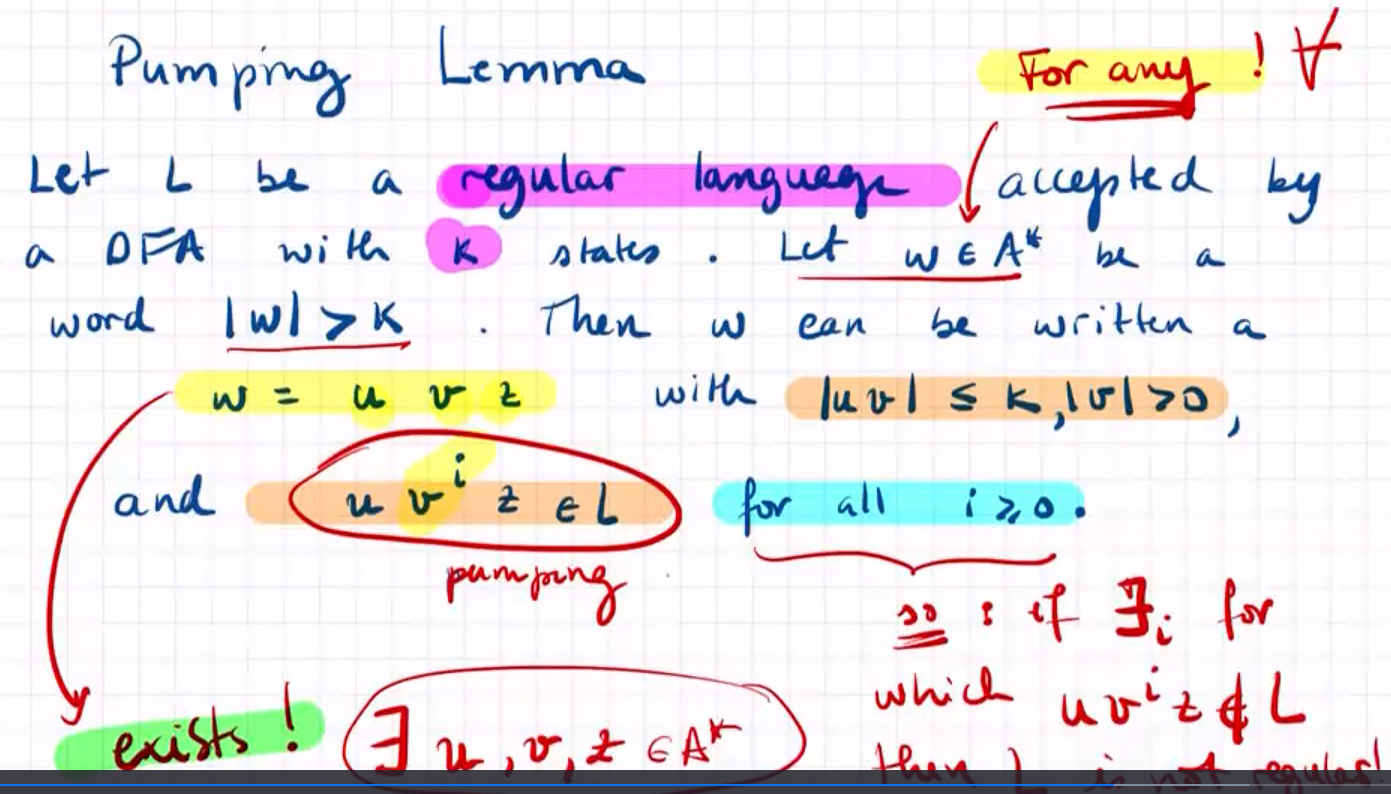 Pumping Lemma
For any ! ∀
Let L be a regular language accepted by
a DFA with K states . Let w ∈ A* be a
word |w| > K . Then w can be written a
w = u v z with |u v| ≤ K, |v| > 0,
and u v^i z ∈ L for all i ≥ 0.
pumping
so : if ∃i for
which u v^i z ∉ L
then L is not regular!
exists ! ∃ u, v, z ∈ A*